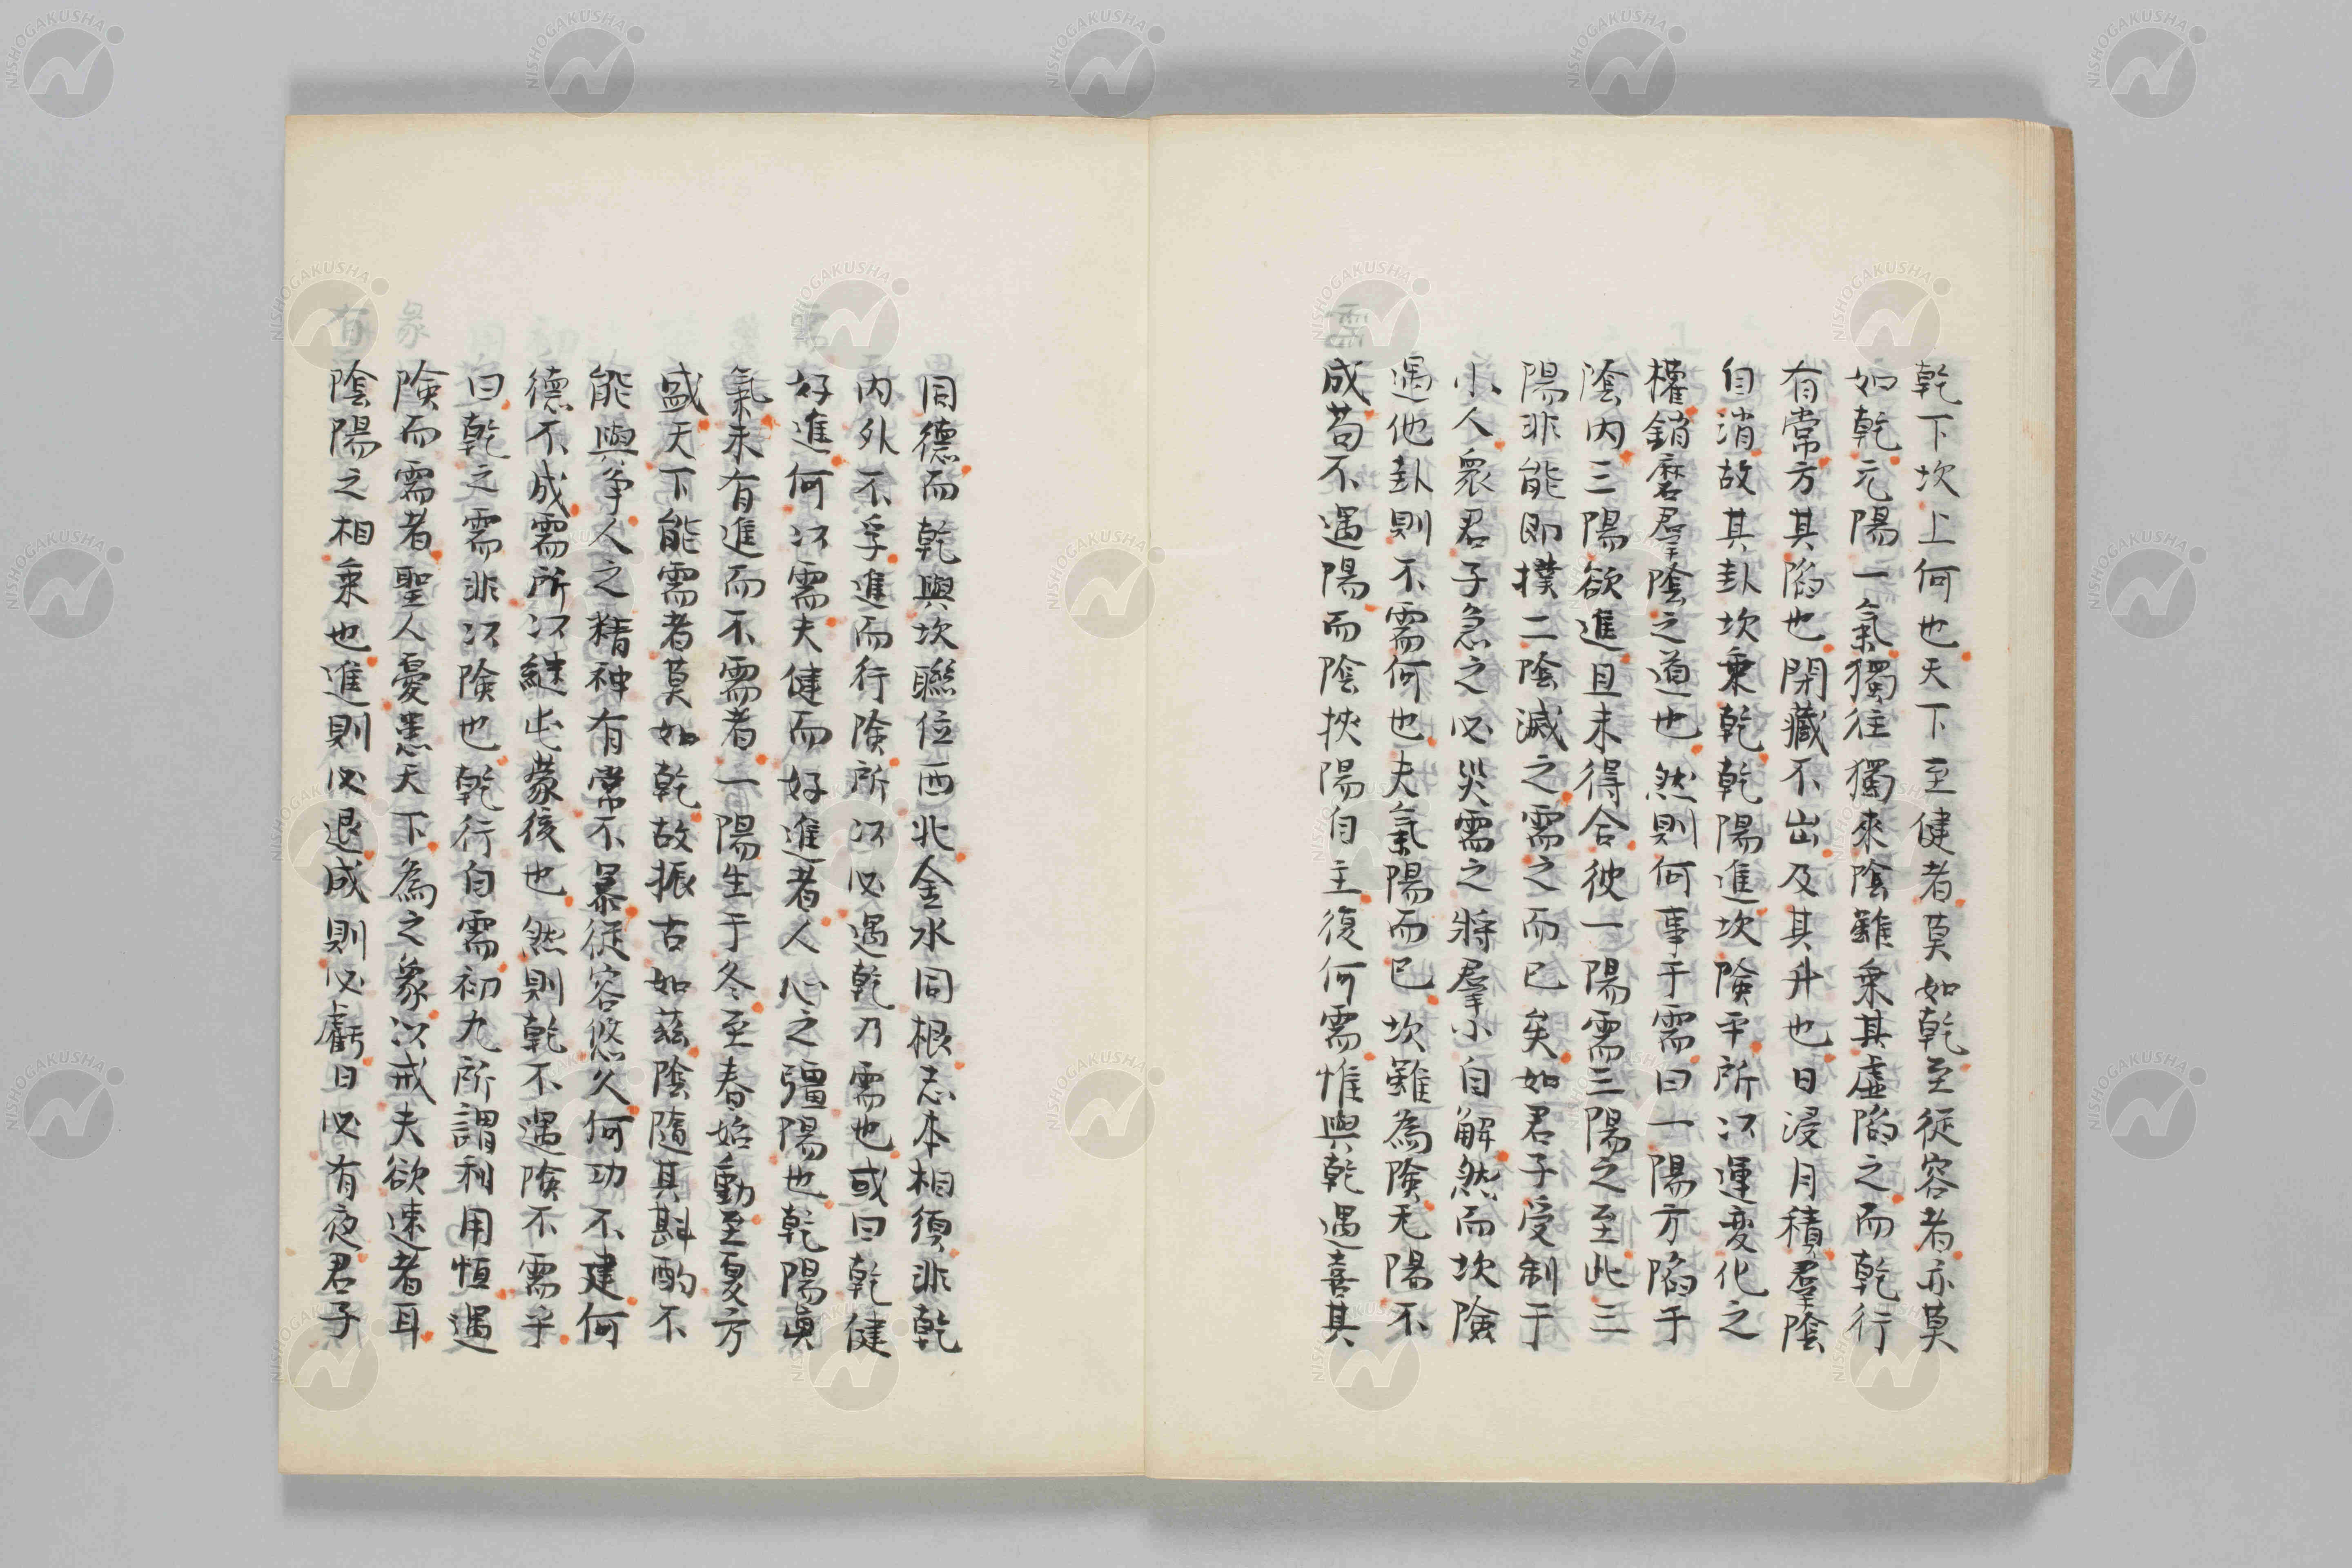 乾下坎上何也天下至健者莫如乾至従容者亦莫
如乾元陽一氣獨往獨來陰雖乗其虚陷之而乾行
有常方其陷也閉藏不出及其升也日浸月積羣陰
自消故其卦坎乗乾乾陽進坎険平所以運変化之
權銷磨羣陰之道也然則何事于需曰一陽方陷于
陰内三陽欲進且未得合彼一陽需三陽之至此三
陽非能即撲二陰滅之需之而已矣如君子受制于
小人衆君子急之必災需之將羣小自解然而坎險
遇他卦則不需何也夫氣陽而已坎雖為険无陽不
成苟不遇陽而陰挾陽自主復何需惟與乾遇喜其
同德而乾與坎聯位西北金水同根志本相須非乾
内外不孚進而行険所以必遇乾乃需也或曰乾健
好進何以需夫健而好進者人心之彊陽也乾陽眞
氣未有進而不需者一陽生于冬至春始動至夏方
盛天下能需者莫如乾故振古如茲陰隨其斟酌不
能與爭人之精神有常不暴従容悠久何功不建何
德不成需所以継屯蒙後也然則乾不遇険不需乎
曰乾之需非以険也乾行自需初九所謂利用恒遇
険而需者聖人憂患天下為之象以戒夫欲速者耳
陰陽之相乗也進則必退成則必虧日必有夜君子